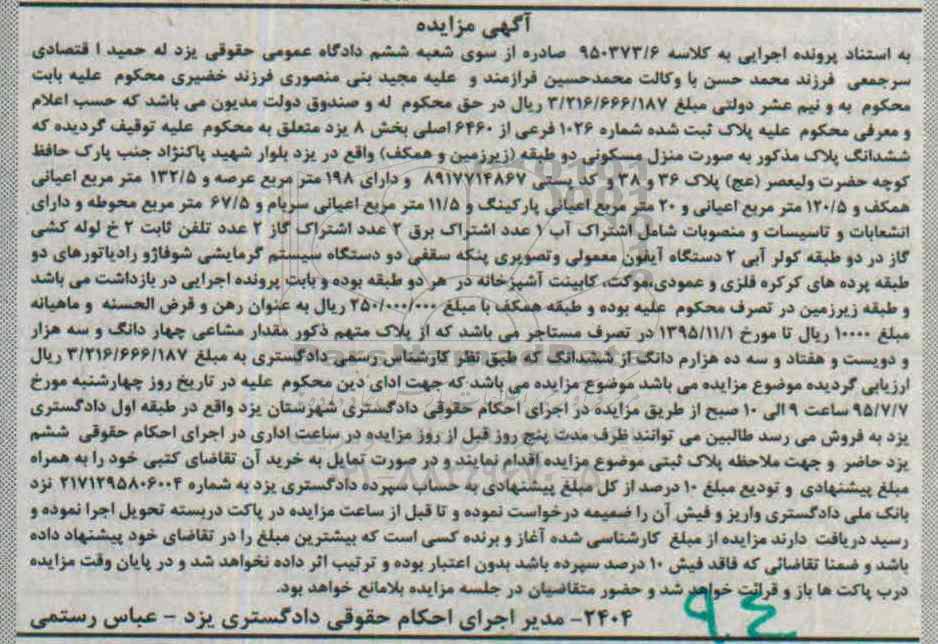 آگهی مزایده
به استناد پرونده اجرایی به کلاسه ۹۵۰۳۷۳/۶ صادره از سوی شعبه ششم دادگاه عمومی حقوقی یزد له حمید ا قتصادی
سرجمعی فرزند محمد حسن با وکالت محمدحسین فرازمند و علیه مجید بنی منصوری فرزند خضیری محکوم علیه بابت
محکوم به و نیم عشر دولتی مبلغ ۳/۲۱۶/۶۶۶/۱۸۷ ریال در حق محکوم له و صندوق دولت مدیون می باشد که حسب اعلام
و معرفی محکوم علیه پلاک ثبت شده شماره ۱۰۲۶ فرعی از ۶۴۶۰ اصلی بخش ۸ یزد متعلق به محکوم علیه توقیف گردیده که
ششدانگ پلاک مذکور به صورت منزل مسکونی دو طبقه (زیرزمین و همکف) واقع در یزد بلوار شهید پاکنژاد جنب پارک حافظ
کوچه حضرت ولیعصر (عج) پلاک ۳۶ و ۳۸ و کد پستی ۸۹۱۷۷۱۴۸۶۷ و دارای ۱۹۸ متر مربع عرصه و ۱۳۲/۵ متر مربع اعیانی
همکف و ۱۲۰/۵ متر مربع اعیانی و ۲۰ متر مربع اعیانی پارکینگ و ۱۱/۵ متر مربع اعیانی سرپام و ۶۷/۵ متر مربع محوطه و دارای
انشعابات و تاسیسات و منصوبات شامل اشتراک آب ۱ عدد اشتراک برق ۲ عدد اشتراک گاز ۲ عدد تلفن ثابت ۲ خ لوله کشی
گاز در دو طبقه کولر آبی ۲ دستگاه آیفون معمولی وتصویری پنکه سقفی دو دستگاه سیستم گرمایشی شوفاژو رادیاتورهای دو
طبقه پرده های کرکره فلزی و عمودی،موکت، کابینت آشپزخانه در هر دو طبقه بوده و بابت پرونده اجرایی در بازداشت می باشد
و طبقه زیرزمین در تصرف محکوم علیه بوده و طبقه همکف با مبلغ ۲۵۰/۰۰۰/۰۰۰ ریال به عنوان رهن و قرض الحسنه و ماهیانه
مبلغ ۱۰۰۰۰ ریال تا مورخ ۱۳۹۵/۱۱/۱ در تصرف مستاجر می باشد که از پلاک متهم ذکور مقدار مشاعی چهار دانگ و سه هزار
و دویست و هفتاد و سه ده هزارم دانگ از ششدانگ که طبق نظر کارشناس رسمی دادگستری به مبلغ ۳/۲۱۶/۶۶۶/۱۸۷ ریال
ارزیابی گردیده موضوع مزایده می باشد موضوع مزایده می باشد که جهت ادای دین محکوم علیه در تاریخ روز چهارشنبه مورخ
۹۵/۷/۷ ساعت ۹ الی ۱۰ صبح از طریق مزایده در اجرای احکام حقوقی دادگستری شهرستان یزد واقع در طبقه اول دادگستری
یزد به فروش می رسد طالبین می توانند ظرف مدت پنج روز قبل از روز مزایده در ساعت اداری در اجرای احکام حقوقی ششم
یزد حاضر و جهت ملاحظه پلاک ثبتی موضوع مزایده اقدام نمایند و در صورت تمایل به خرید آن تقاضای کتبی خود را به همراه
مبلغ پیشنهادی و تودیع مبلغ ۱۰ درصد از کل مبلغ پیشنهادی به حساب سپرده دادگستری یزد به شماره ۲۱۷۱۲۹۵۸۰۶۰۰۴ نزد
بانک ملی دادگستری واریز و فیش آن را ضمیمه درخواست نموده و تا قبل از ساعت مزایده در پاکت دربسته تحویل اجرا نموده و
رسید دریافت دارند مزایده از مبلغ کارشناسی شده آغاز و برنده کسی است که بیشترین مبلغ را در تقاضای خود پیشنهاد داده
باشد و ضمنا تقاضائی که فاقد فیش ۱۰ درصد سپرده باشد بدون اعتبار بوده و ترتیب اثر داده نخواهد شد و در پایان وقت مزایده
درب پاکت ها باز و قرائت خواهد شد و حضور متقاضیان در جلسه مزایده بلامانع خواهد بود.
۲۴۰۴- مدیر اجرای احکام حقوقی دادگستری یزد - عباس رستمی
۹۴